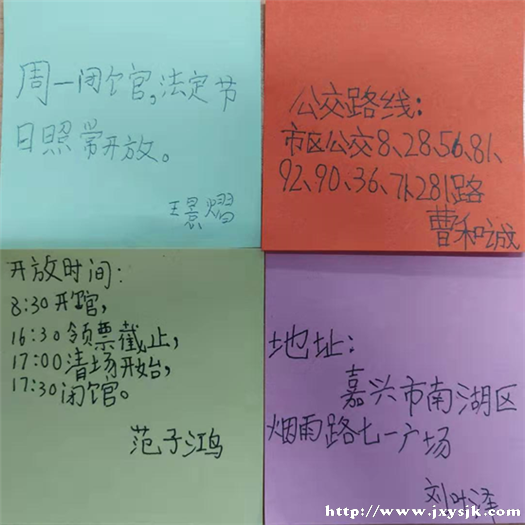 周一闭馆,法定节
日照常开放。
王景熠
公交路线:
市区公交8、28、56、81、
92、90、36、K281路
曹和诚
开放时间:
8:30开馆,
16:30领票截止,
17:00清场开始,
17:30闭馆。
范子鸿
地址:
嘉兴市南湖区
烟雨路七一广场
刘叶泽
http://www.jxysjk.com